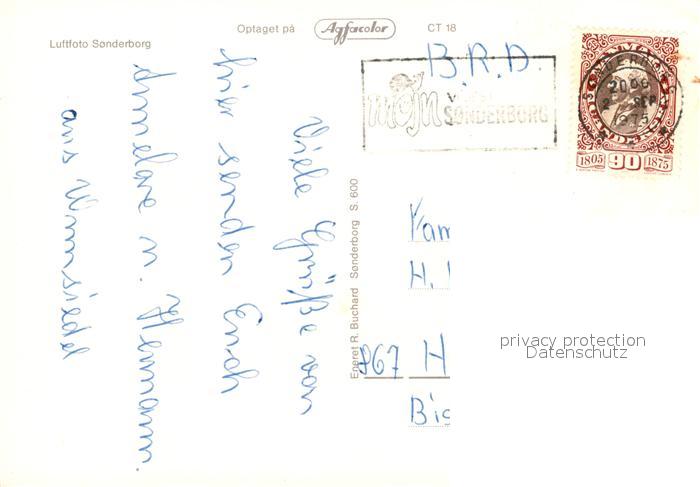 Luftfoto Sønderborg
Optaget på Agfacolor CT 18
B.R.D.
mojn
SØNDERBORG
20 00
2 SEP
1975
1805 90 1875
Viele Grüße von
hier senden Euch
Annelore u. Hermann.
aus Wunsiedel
Eneret R. Buchard Sønderborg S. 600
Fam
H.
867 H
privacy protection
Datenschutz